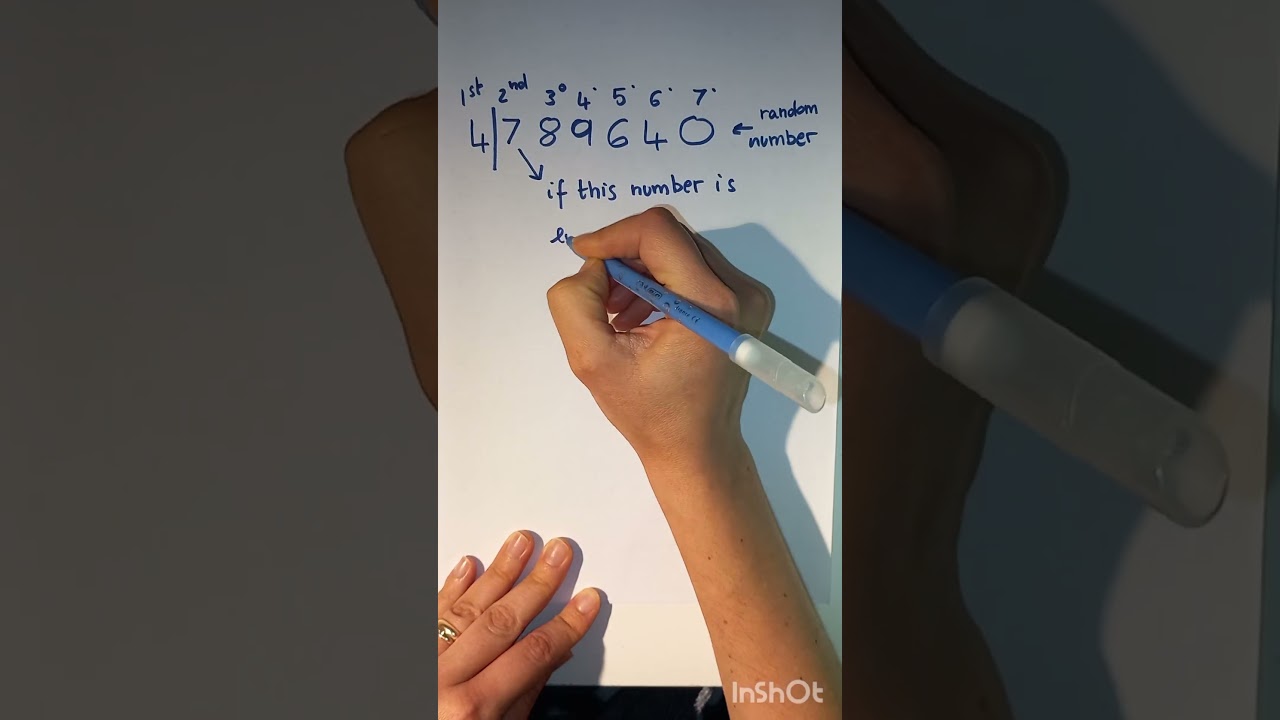 1st 2nd 3° 4· 5· 6· 7·
4|7 8 9 6 4 0 ← random
number
if this number is
InShOt